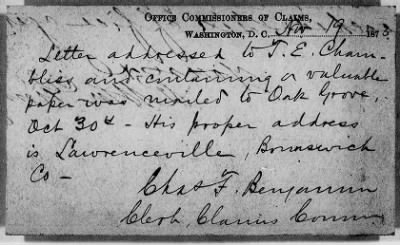 OFFICE COMMISSIONERS OF CLAIMS,
WASHINGTON, D. C. Nov 19 1873
Letter addressed to T. E. Cham-
bliss, and containing a valuable
paper was mailed to Oak Grove,
Oct 30th - His proper address
is Lawrenceville, Brunswick
Co -
Chas F. Benjamin
Clerk, Claims Comm